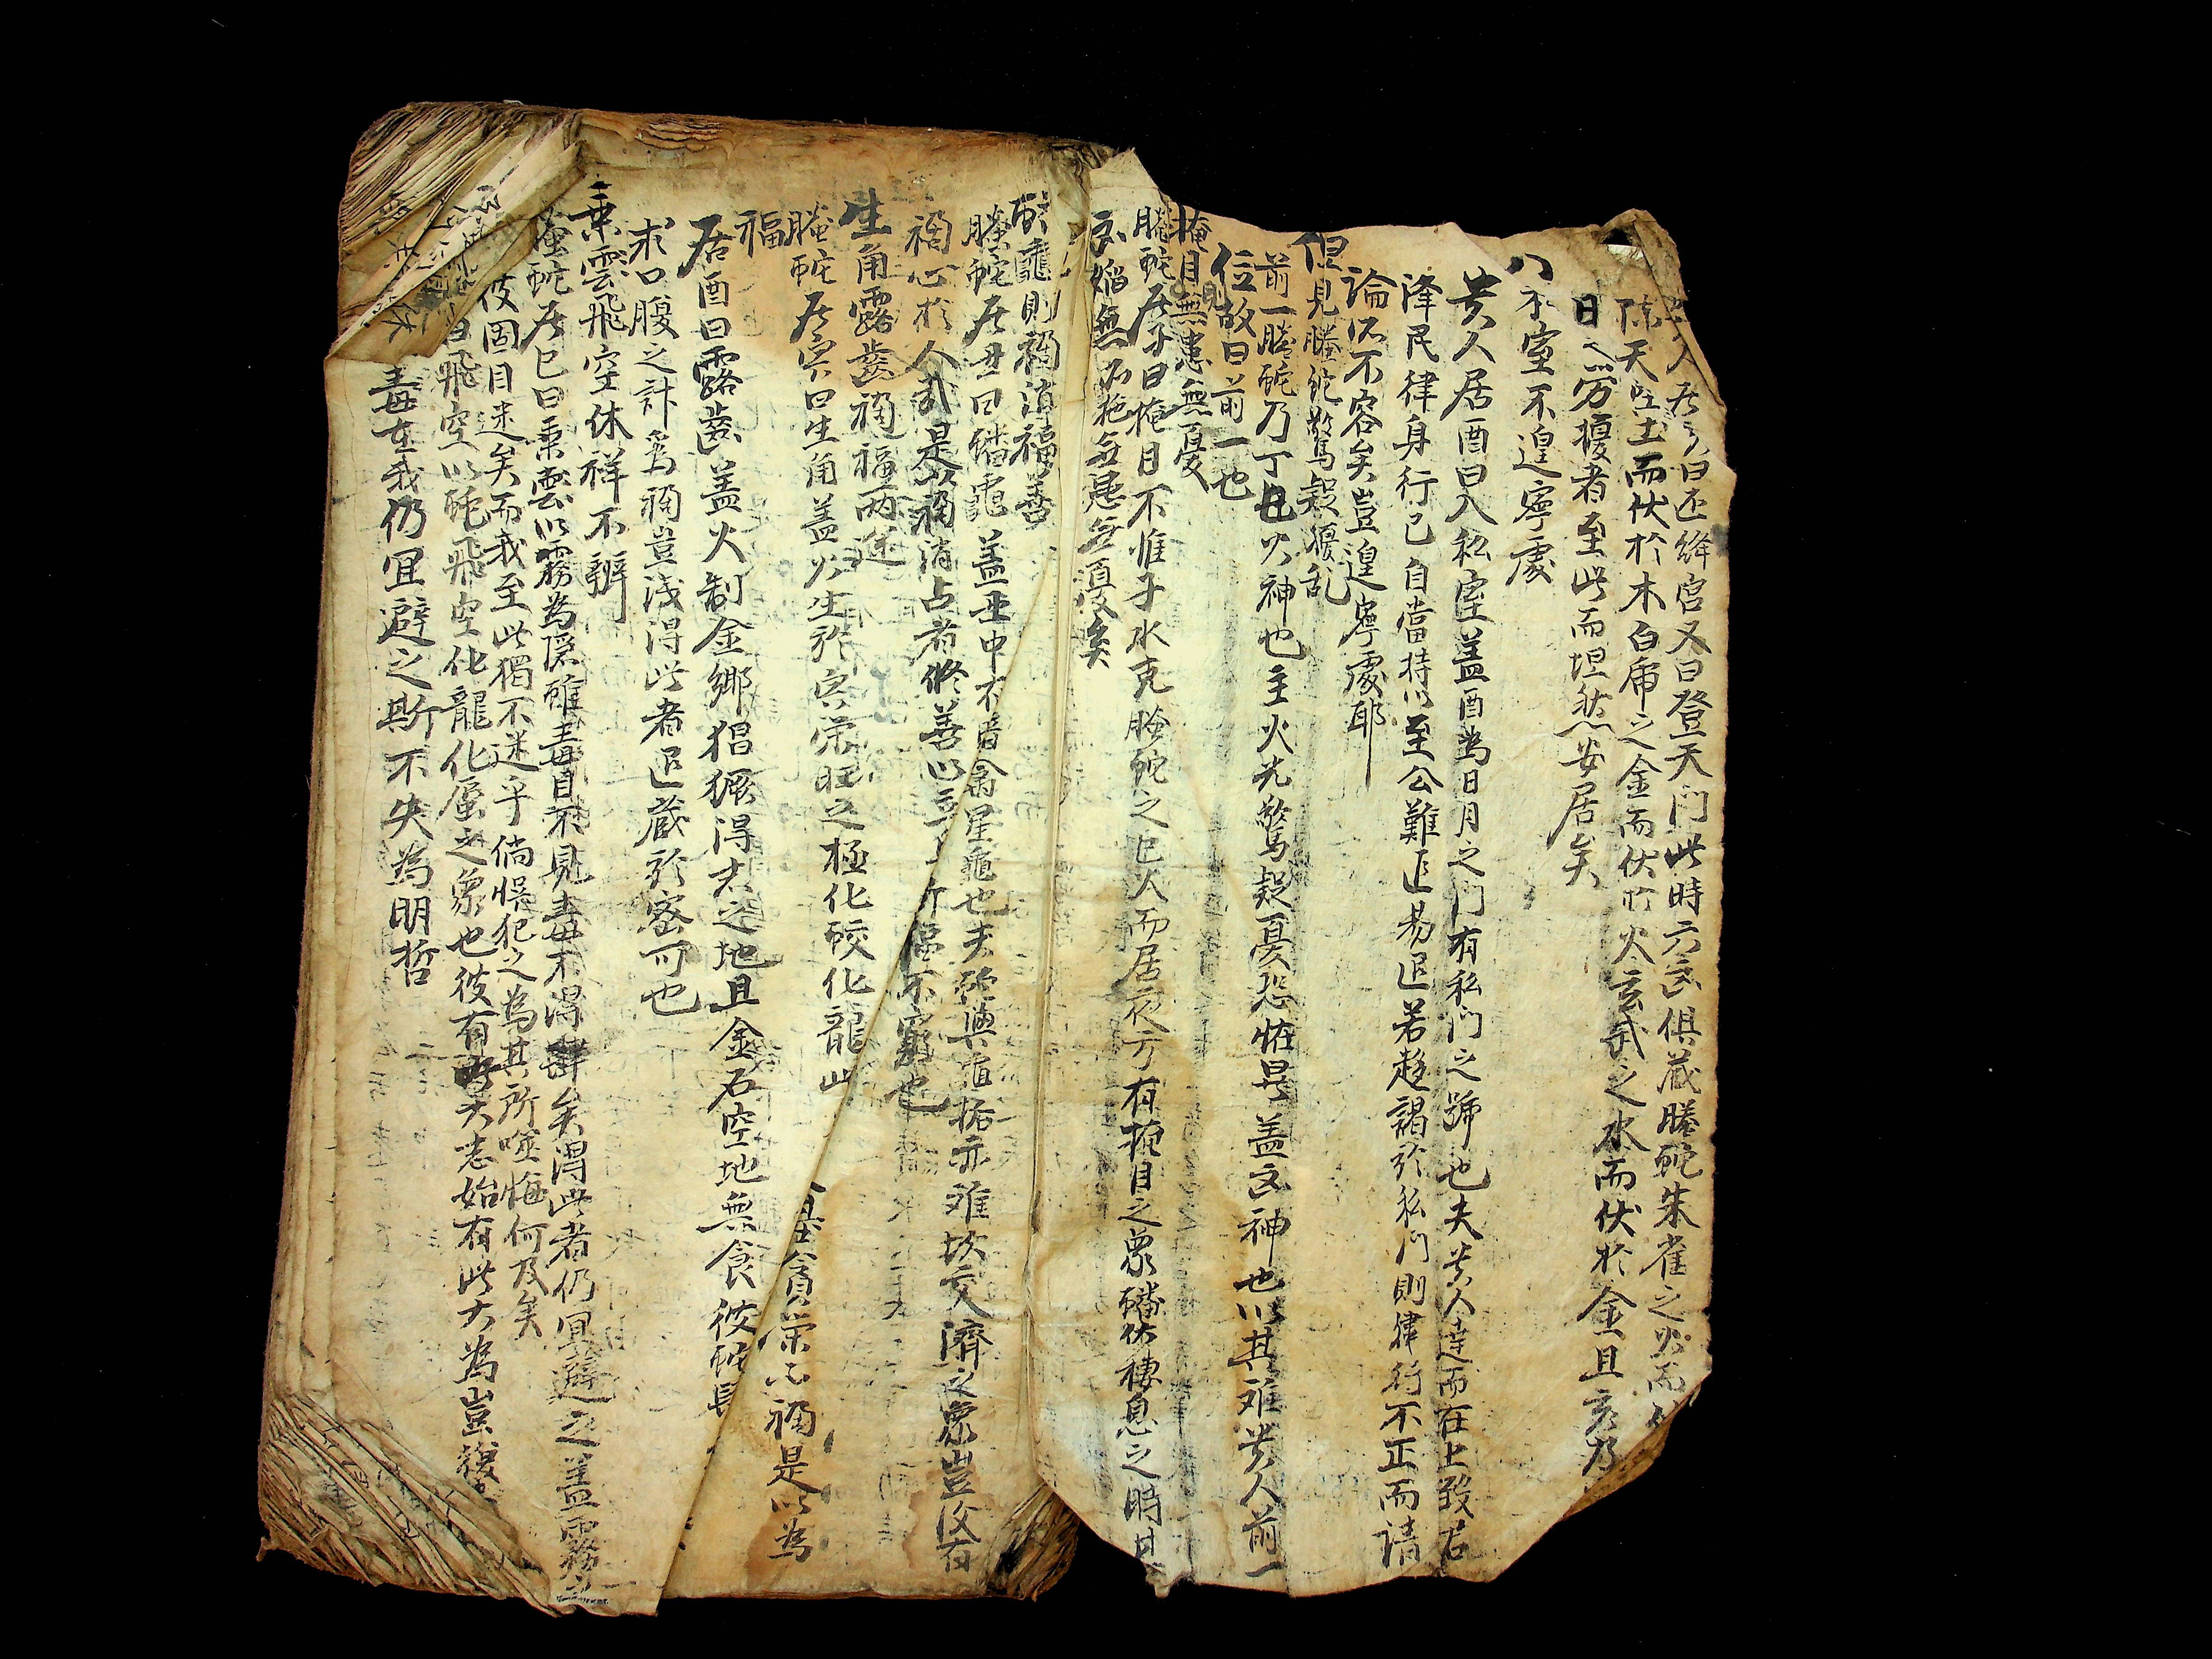 貴人居亥曰还絳宮又曰登天门此時六凶俱藏螣蛇朱雀之火而
陳天空土而伏於木白虎之金而伏於火玄武之水而伏於金且亥乃
日 劳擾者至此而坦然安居矣
入不室不遑寧處
贵人居酉曰入私室盖酉為日月之门有私门之號也夫贵人達而在上致君
泽民律身行己自當持以至公難進易退若趍謁於私门則律行不正而請
論所不容矣豈遑寧處耶
但見螣蛇驚疑擾乱
前一螣蛇乃丁巳火神也主火光驚疑憂恐怪異盖凶神也以其难贵人前一
位故曰前一也
掩目無患無憂
螣蛇居子曰掩目不惟子水克螣蛇之巳火而居夜方有掩目之象蟠伏棲息之時其
凶焰無所施無患無憂矣
蟠龜則禍消福善
螣蛇居丑曰蟠龜盖丑中有 禽星龜也夫蛇與龜 亦难坎交濟之象豈復有
禍心於人哉是以禍消占者修善以 所 福不窮也
生角露齒禍福两途
螣蛇居寅曰生角盖火生於寅荣旺之極化蛟化龍此 貪荣 禍是以為
福
居酉曰露齒盖火制金鄉猖獗得志之地且金石空地無食彼蛇長
求口腹之計為禍豈浅得此者退藏於密可也
乗雲飛空休祥不辦
螣蛇居巳曰乗雲以霧為隱雖毒目不見毒不得肆矣得此者仍宜避之盖霧之
彼固目迷矣而我至此獨不迷乎倘悞犯之為其所噬悔何及矣
曰飛空以蛇飛空化龍化蜃之象也彼有 大志始有此大為豈復
毒在我仍宜避之斯不失為明哲